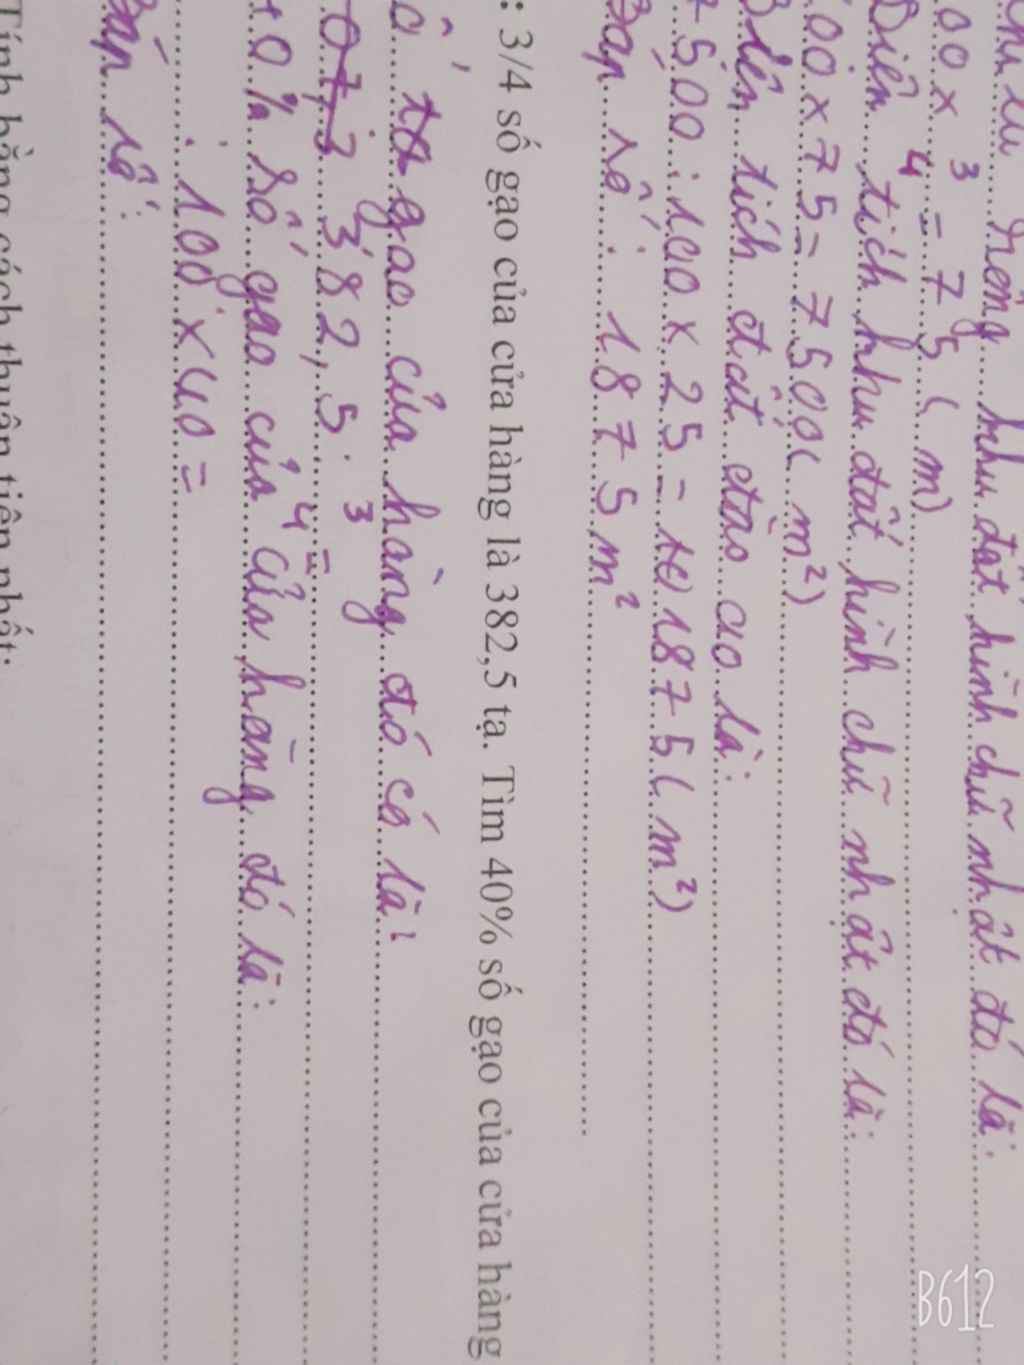 chiều rộng khu đất hình chữ nhật đó là:
00 x 3/4 = 75 (m)
Diện tích khu đất hình chữ nhật đó là:
00 x 75 = 7500 (m²)
Diện tích đất đào ao là:
7500 : 100 x 25 = 1875 (m²)
Đáp số : 1875 m²
: 3/4 số gạo của cửa hàng là 382,5 tạ. Tìm 40% số gạo của cửa hàng
ố tạ gạo của hàng đó có là:
382,5 : 3/4 =
40% số gạo của cửa hàng đó là:
: 100 x 40 =
Đáp số:
Tính bằng cách thuận tiện nhất:
B612